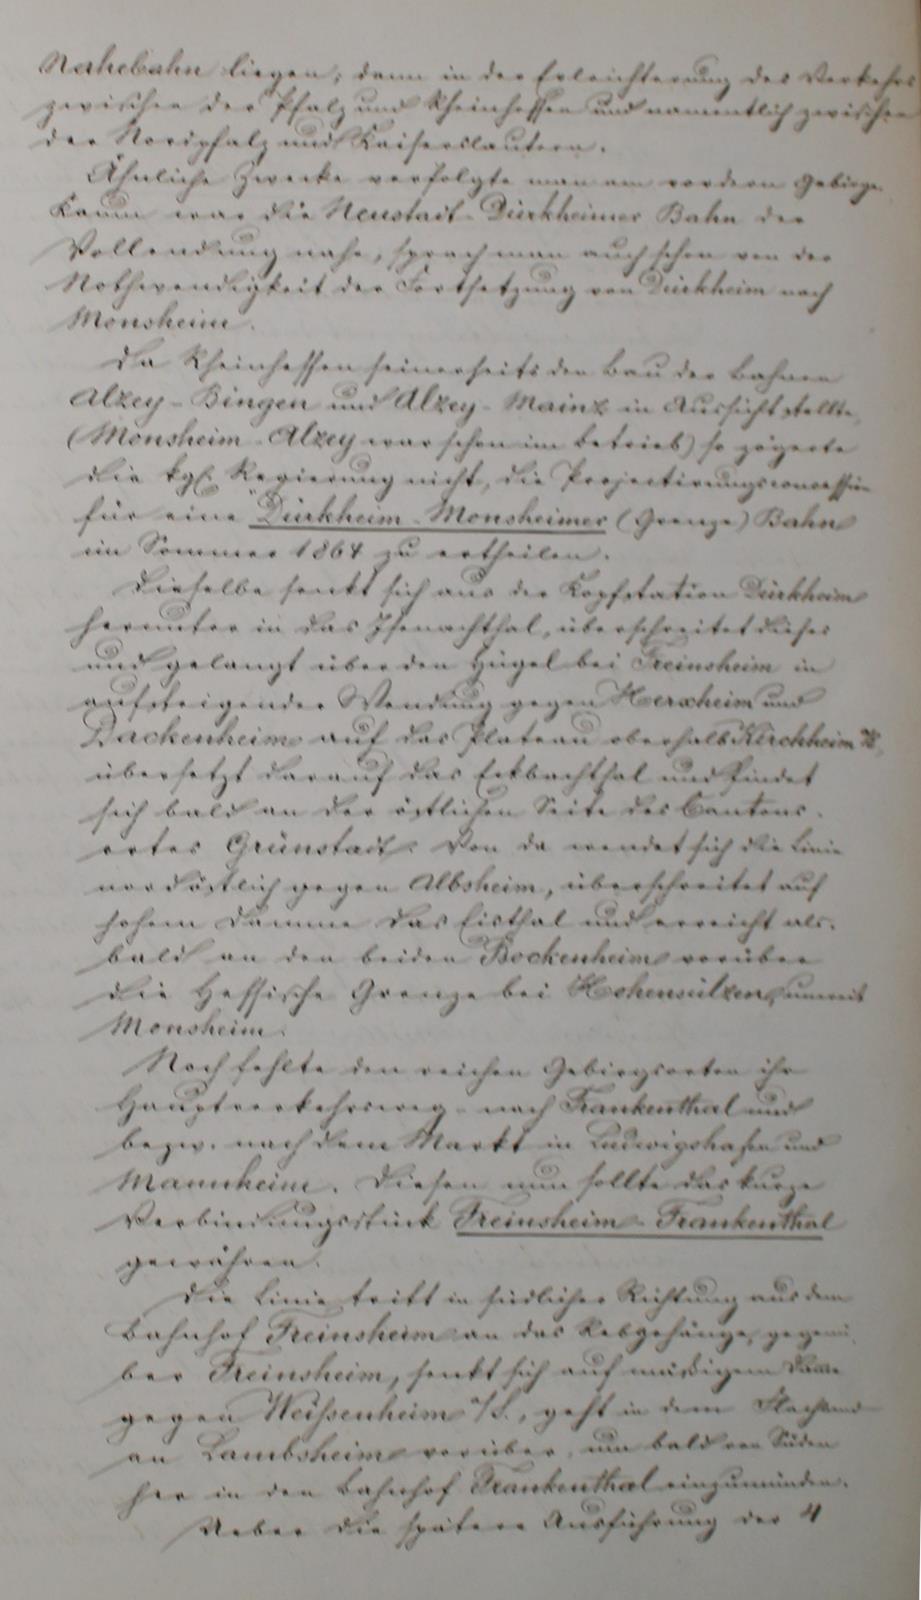 Nahebahn liegen; dann in der Erleichterung des Verkehrs
zwischen der Pfalz und Rheinhessen und namentlich zwischen
der Nordpfalz und Kaiserslautern.
Ähnliche Zwecke verfolgte man am vordern Gebirge.
Kaum war die Neustadt-Dürkheimer Bahn der
Vollendung nahe, sprach man auch schon von der
Nothwendigkeit der Fortsetzung von Dürkheim nach
Monsheim.
Da Rheinhessen seinerseits den Bau der Bahnen
Alzey-Bingen und Alzey-Mainz in Aussicht stellte,
(Monsheim-Alzey war schon im Betrieb) so zögerte
die kgl. Regierung nicht, die Projectirungsconcession
für eine Dürkheim-Monsheimer (Grenze) Bahn
im Sommer 1864 zu ertheilen.
Dieselbe senkt sich aus der Kopfstation Dürkheim
herunter in das Isenachthal, überschreitet dieses
und gelangt über den Hügel bei Freinsheim in
aufsteigender Wendung gegen Herxheim und
Dackenheim auf das Plateau oberhalb Kirchheim a/E,
übersetzt darauf das Eckbachthal und findet
sich bald an der östlichen Seite des Cantons-
ortes Grünstadt. Von da wendet sich die Linie
nordöstlich gegen Albsheim, überschreitet auf
hohem Damme das Eisthal und erreicht als-
bald an den beiden Bockenheim vorüber
die Hessische Grenze bei Hohensülzen, unweit
Monsheim.
Noch fehlte den reichen Gebirgsorten ihr
Hauptverkehrsweg nach Frankenthal und
bezw. nach dem Markt in Ludwigshafen und
Mannheim. Diesen nun sollte das kurze
Verbindungsstück Freinsheim-Frankenthal
gewähren.
Die Linie tritt in südlicher Richtung aus dem
Bahnhof Freinsheim an das Rebgehänge, gegenü-
ber Freinsheim, senkt sich auf mäßigem Damme
gegen Weißenheim a/S., geht in dem Flachland
an Lambsheim vorüber, um bald von Süden
her in den Bahnhof Frankenthal einzumünden.
Ueber die spätere Ausführung der 4